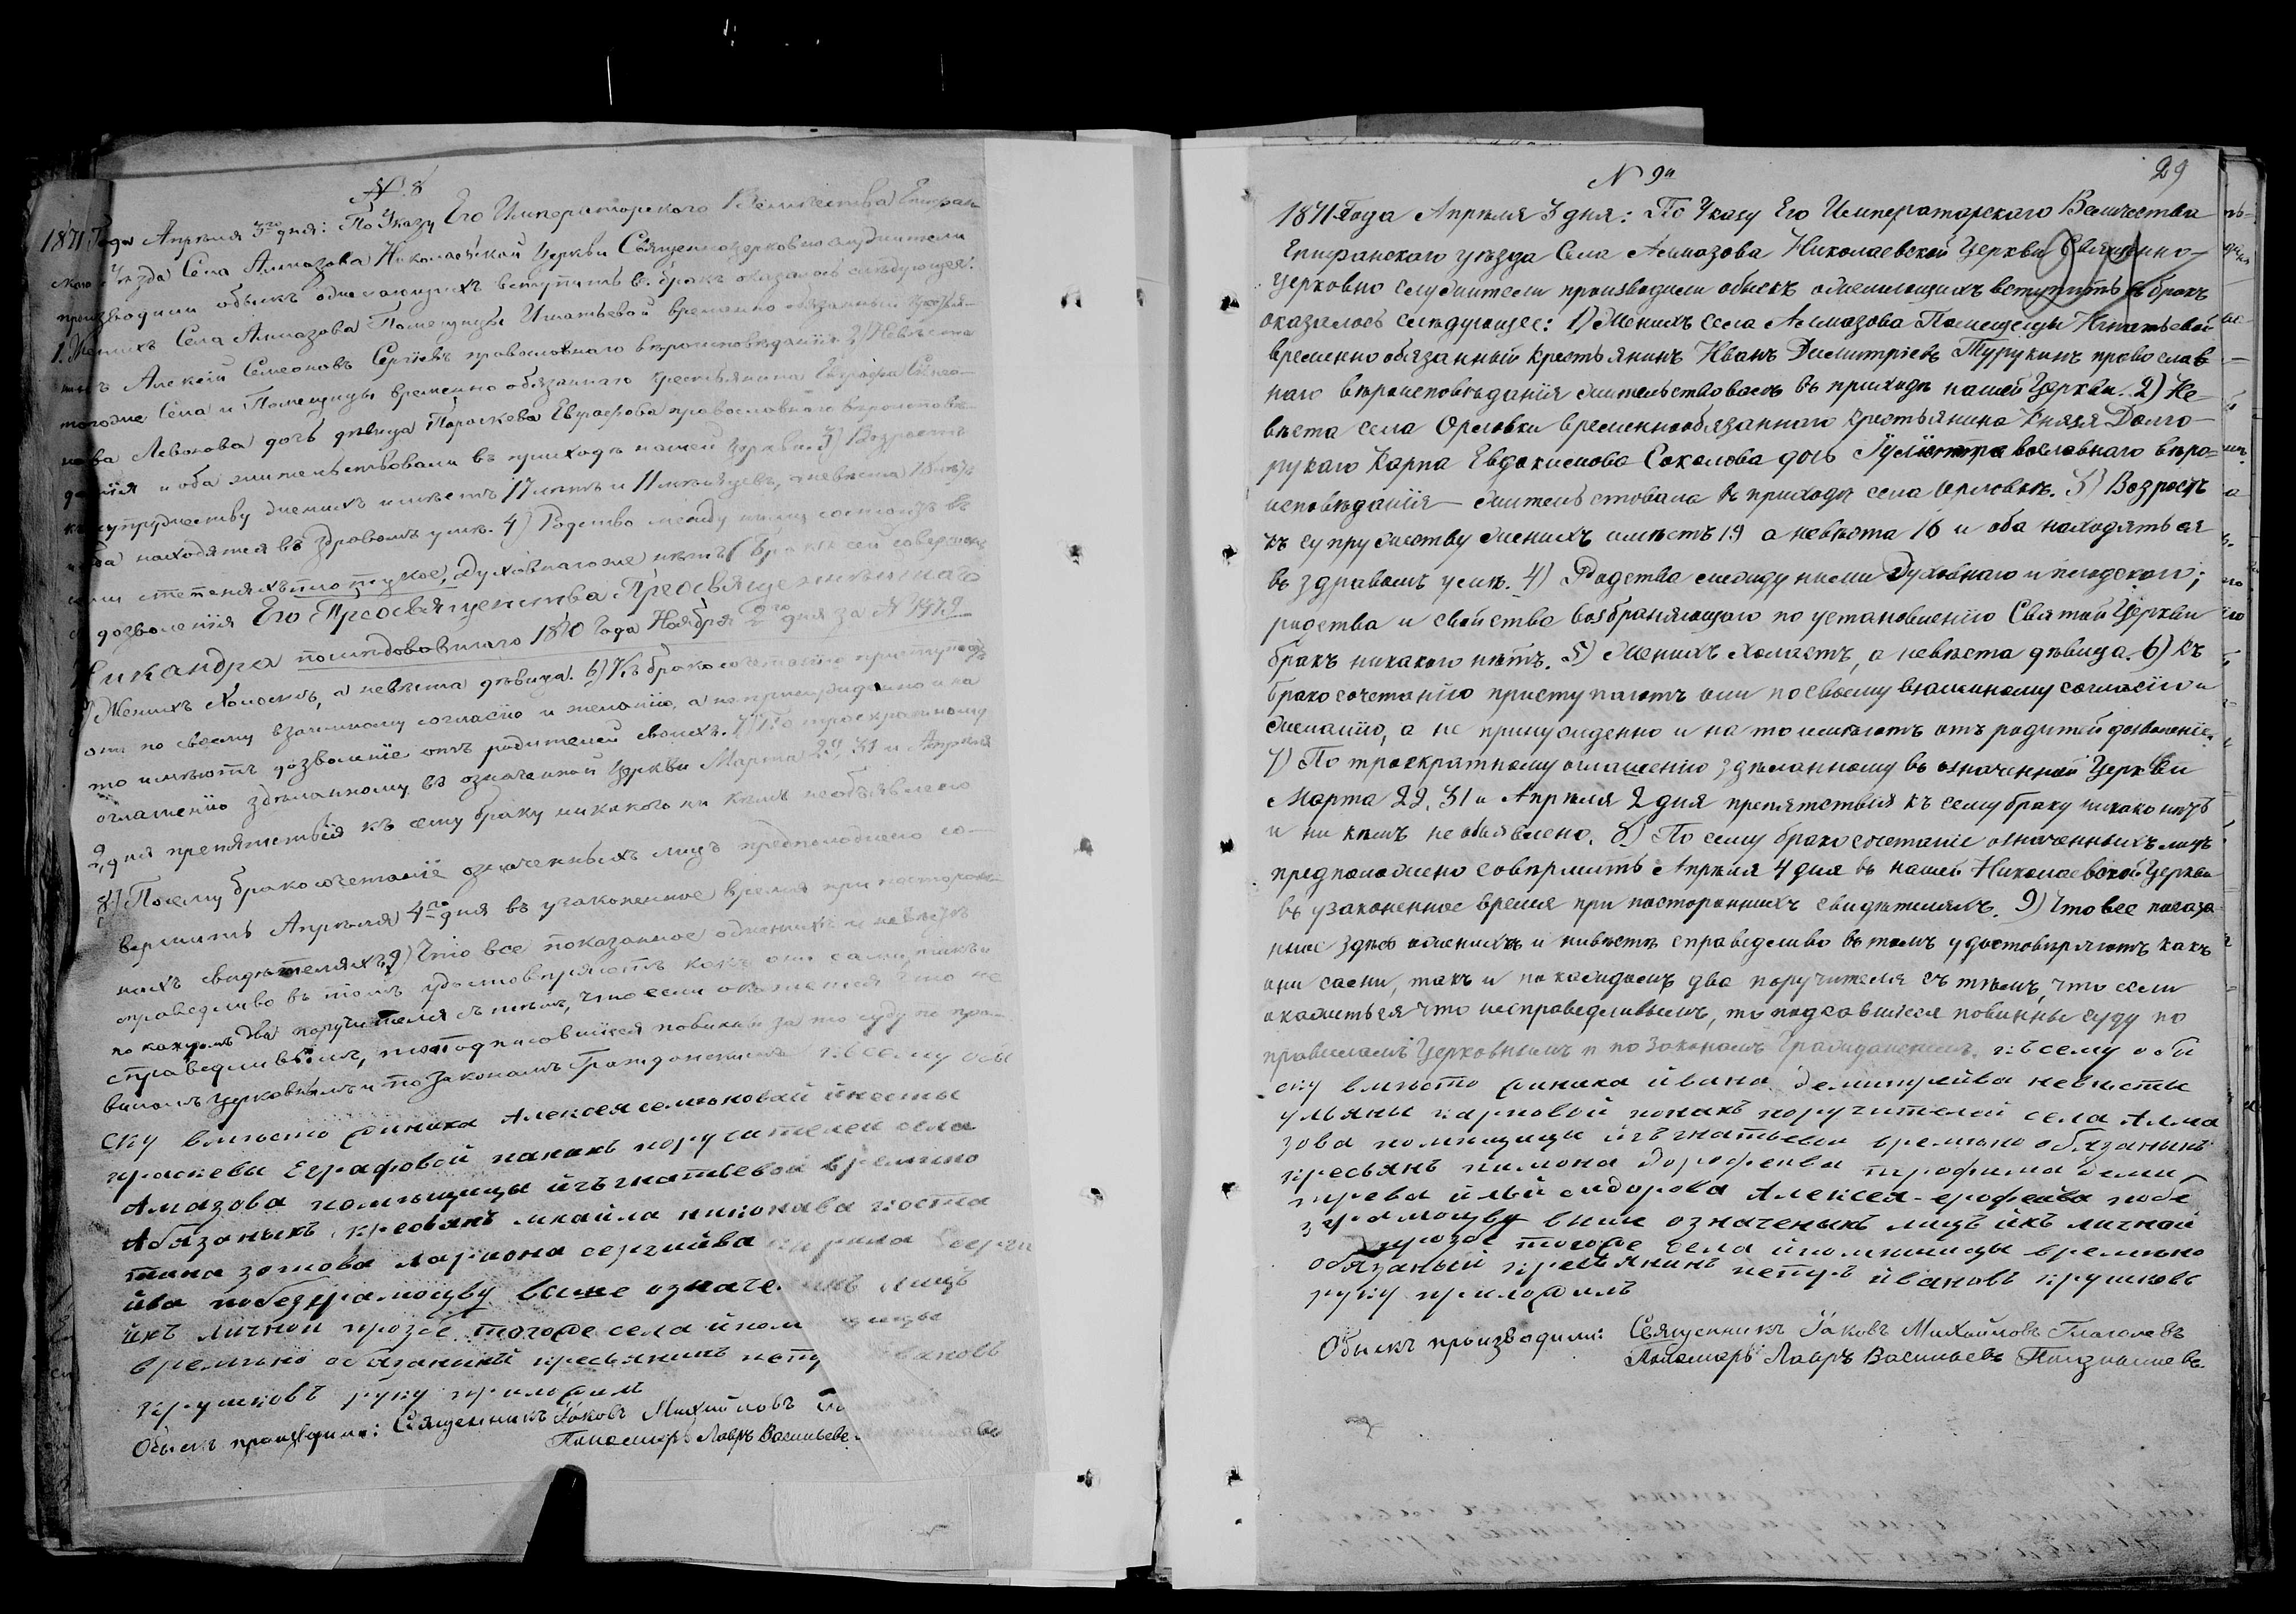 № 8
1871 Года Апреля 3го дня: По Указу Его Императорского Величества Епифан
скаго Уезда Села Алмазова Николаевской Церкви Священноцерковнослужители
производили обыскъ о желающихъ вступить въ бракъ оказалось следующее:
1. Женихъ Села Алмазова Помещицы Игнатьевой временно обязанный крестья-
нинъ Алексей Семеоновъ Сергеевъ православнаго вероисповеданія 2) Невеста
тогоже Села и Помещицы временно обязаннаго крестьянина Евграфа
Левонова дочь девица Параскева Евграфова православнаго вероиспове-
данія и оба жительствовали въ приходе нашей Церкви. 3) Возрастъ
къ супружеству женихъ имеетъ 17 летъ и 11 месяцевъ, а невеста 18 летъ
и оба находятся въ здравомъ уме. 4) Родство между ними состоитъ въ
степеняхъ плотское, духовнагоже нетъ (бракъ сей совершенъ
съ дозволенія Его Преосвященства Преосвященнейшаго
Никандра последовавшаго 1870 Года Ноября 2го дня за № 1479
5) Женихъ Холостъ, а невеста девица. 6) Къ бракосочетанію приступаютъ
они по своему взаимному согласію и желанію, а не принужденно и на
то имеютъ дозволеніе отъ родителей своихъ. 7) По троекратному
оглашенію зделанному въ означенной Церкви Марта 29, 31 и Апреля
2 дня препятствія къ сему браку никакого ни кемъ необъявлено
8) Посему бракосочетаніе означенныхъ лицъ предположено со-
вершить Апреля 4го дня въ узаконенное время при посторон-
нихъ свидетеляхъ. 9) Что все показанное о женихе и невесте
справедливо въ томъ удостоверяютъ какъ они сами, такъ и
по каждомъ два поручителя съ темъ, что если окажется что не
справедливымъ, то подписавшіеся повинны за то суду по пра-
виламъ Церковнымъ и по Законамъ Гражданскимъ. к сему обы
ску вместо жиниха Алексея семионовай
праскевы Еграфовой поручателей села
Амазова помещицы игънатьевой времино
Абязаныхъ кресьянъ михайла никонава коста
тина зотова лариона сергийва кирила серги
йва побезграмоцву выше означе лицъ
ихъ личной прозбе тогоже села
времяно обязаный кресьянинъ
крушковъ руку приложилъ
Обыскъ производили: Священникъ Іаковъ Михайловъ
Пономарь Лавръ Васильевъ
29
№ 9й
1871 Года Апреля 3 дня: По Указу Его Императарскаго Величества
Епифанскаго уезда Села Алмазова Николаевской Церкви Священно-
церковно служители производили обыскъ о желающихъ вступить въ бракъ
оказалось следующее: 1) Женихъ села Алмазова Помещицы Игнатьевой
временно обязанный крестьянинъ Иванъ Димитріевъ Турукинъ православ
наго вероисповеданія жительствовалъ въ приходе нашей Церкви. 2) Не-
веста села Орловки временнообязаннаго крестьянина Князя Долго-
рукаго Карпа Евдокимова Соколова дочь православнаго веро-
исповеданія — жительствовала въ приходе села Орловке. 3) Возрастъ
къ супружеству женихъ имеетъ 19 а невеста 16 и оба находяться
въ здравомъ уме. 4) Родства между ними духовнаго и плодскаго;
родства и свойства возбраняющаго по установленію Святой Церкви
бракъ никакого нетъ. 5) Женихъ холастъ, а невеста девица. 6) Къ
бракосочетанію приступаютъ они по своему взаимному согласію и
желанію, а не принужденно и на то имеютъ отъ родитей дозволеніе.
7) По троекратному оглашенію зделанному въ означенной Церкви
Марта 29, 31 и Апреля 2 дня препятствія къ сему браку никако нетъ
и ни кемъ не объявлено. 8) По сему бракосочетаніе означенныхъ лицъ
предположено совершить Апреля 4 дня въ нашей Николаевской Церкви
въ узаконенное время при посторонныхъ свидетеляхъ. 9) Что все показа
нное здесь о женихе и невесте справедливо въ томъ удостоверяютъ какъ
они сами, такъ и по каждомъ два поручителя съ темъ, что если
окажеться что несправедливымъ, то подписавшіеся повинны суду по
правиламъ Церковнымъ и по Законамъ Гражданскимъ. къ сему обы
ску вместо жиниха ивана демитрейва невесты
ульяны карповой поручителей села Алма
зова помищицы игънатьевой времяно обязаныхъ
кресьянъ пимона дорофеива трофима деми
трева ильи сидорова Алексея ерофейва побе
зграмоцву выше означеныхъ лицъ ихъ личной
прозбе тогоже села ипомищицы времяно
обязаный кресьянинъ петръ ивановъ крушковъ
руку приложилъ
Обыскъ производили: Священникъ Іаковъ Михайловъ Глаголевъ
Пономарь Лавръ Васильевъ